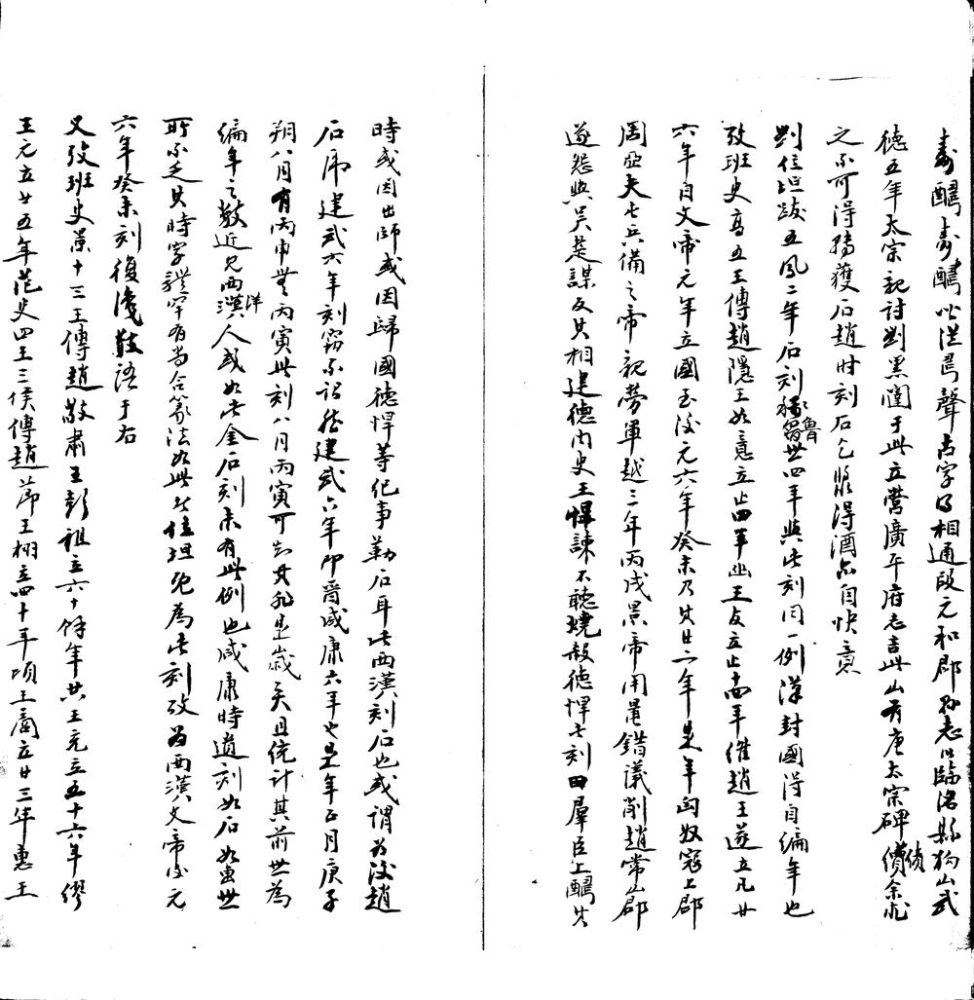 壽醻壽醻以㠯為聲古字得相通段元和郡縣志以臨洺縣狗山武
德五年太宗親討劉黑闥于此立營廣平府志言此山有唐太宗碑償余求
之不可得獲石趙時刻石之㫄得酒亦自快意
劉位坦跋五鳳二年石刻稱魯世四年與此刻同一例漢封國得自編年也
攷班史高五王傳趙隱王如意立止四年幽王友立止十四年惟趙王遂立凡廿
六年自文帝元年立國至後元六年癸未乃其廿二年是年匈奴寇上郡
周亞夫七兵備之帝親勞軍越三年丙戌景帝用鼂錯議削趙常山郡
遂怨與吳楚謀反其相建德內史王悍諫不聽燒殺德悍七刻曰羣臣上醻其
時或因出師或因歸國德悍等紀事勒石耳此西漢刻石也或謂為後趙
石虎建武六年刻竊不謂然建武六年即晉咸康六年也是年正月庚子
朔八月有丙申無丙寅此刻八月丙寅可知其非是歲矣且統計其前世為
編年之數近見西漢人或如此金石刻未有此例也咸康時遺刻如石如金世
所不乏其時字體罕有尚合篆法如此者位坦免為此刻攷為西漢文帝後元
六年癸未刻復淺数語于右
又攷班史景十三王傳趙敬肅王彭祖立六十餘年共王充立五十六年繆
王元立廿五年范史四王三侯傳趙節王栩立四十年頃王商立廿三年惠王